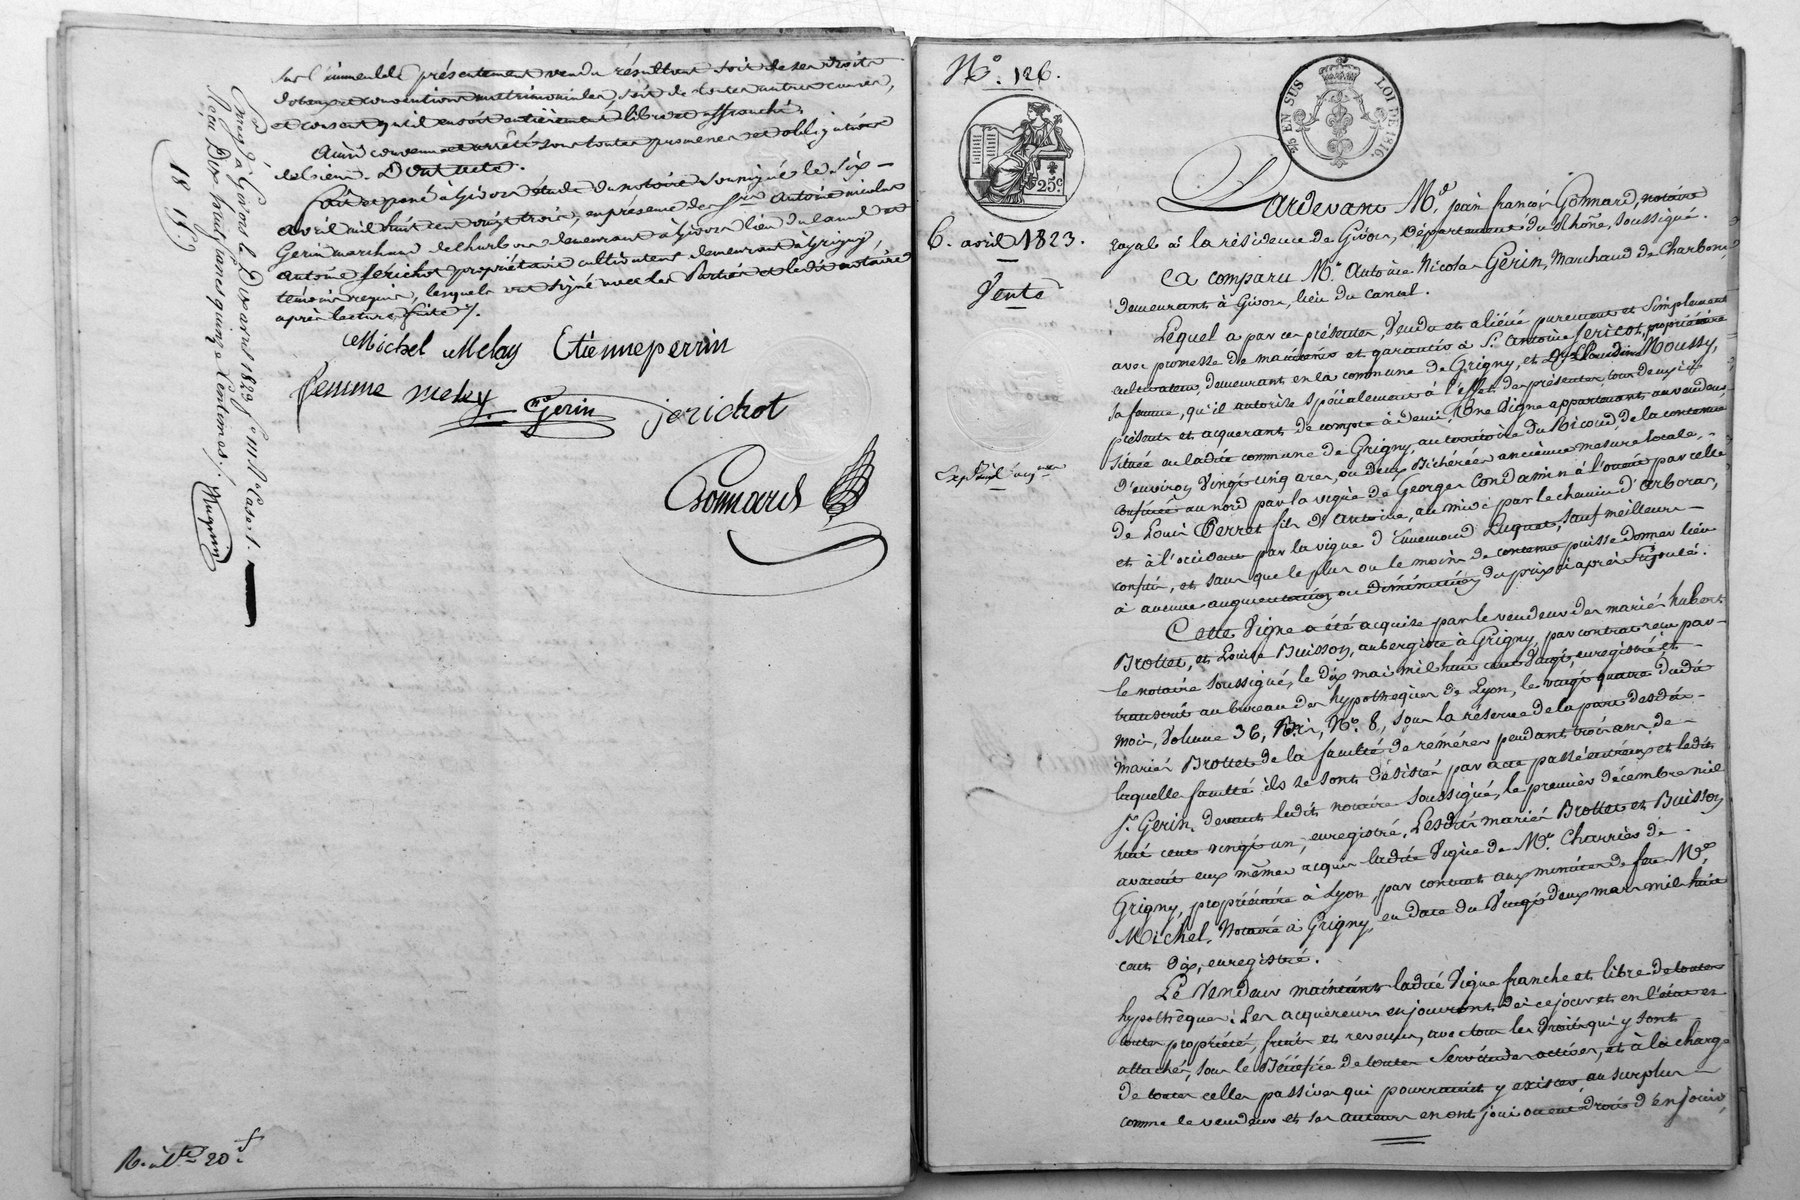 sur l'immeuble présentement vendu résultant soit de ses droits
dotaux et conventions matrimoniales, soit de toutes autres causes,
et consent qu'il en soit entièrement libre et affranchi.
Ainsi convenu et arrêté sous toutes promesses et obligations
de biens. Dont acte.
Fait et passé à Givors étude du notaire soussigné le six
avril mil huit cent vingt trois, en présence de Srs Antoine nicolas
Gerin marchand de charbons demeurant à Givors lieu du canal et
antoine Jerichot propriétaire cultivateur demeurant à Grigny,
témoins requis, lesquels ont signé avec les Parties et ledit notaire
après lecture faite /.
Michel Melay Etienne perrin
femme melay Gerin jerichot
Gonnard
18 15
R. à 20
Nº. 126.
25 EN SUS LOI DE 1816.
25c
6. avril 1823.
Vente
Pardevant Me. jean françois Gonnard, notaire
royal à la résidence de Givors, Département du Rhône, soussigné.
A comparu Mr. Antoine Nicolas Gerin, Marchand de Charbons,
demeurant à Givors, lieu du Canal.
Lequel a par ces présentes, Vendu et aliéné purement et simplement
avec promesse de maintenir et garantir à Sr. Antoine Jericot, propriétaire
cultivateur, demeurant en la commune de Grigny, et Dme Claudine Moussy,
sa femme, qu'il autorise spécialement à l'effet des présentes, tous deux ici
présents et acquérant de compte à demi, Une Vigne appartenant au vendeur,
située en ladite commune de Grigny, au territoire du Nicoud, de la contenue
d'environ Vingt cinq ares, ou deux Bichérées ancienne mesure locale,
confinée au nord par la vigne de Georges Condamin à l'orient par celle
de Louis Perret fils d'antoine, au midi par le chemin d'arboras,
et à l'occident par la vigne d'Ennemond Luquet, sauf meilleurs
confins, et sans que le plus ou le moins de contenue puisse donner lieu
à aucune augmentation ou diminution du prix ci après stipulé.
Cette Vigne a été acquise par le vendeur des mariés hubert
Brottet, et Louise Buisson, aubergiste à Grigny, par contrat reçu par
le notaire soussigné, le dix mai mil huit cent vingt, enregistré, et
transcrit au bureau des hypothèques de Lyon, le vingt quatre dudit
mois, Volume 36, Nº. 8, sous la réserve de la part desdits
mariés Brottet de la faculté de réméré pendant trois ans, de
laquelle faculté ils se sont désistés par acte passé entr'eux et ledit
Sr. Gerin, devant ledit notaire soussigné, le premier décembre mil
huit cent vingt un, enregistré. Lesdits mariés Brottet et Buisson
avaient eux mêmes acquis ladite Vigne de Mr. Charrier de
Grigny, propriétaire à Lyon, par contrat aux minutes de feu Me.
Michel, Notaire à Grigny, en date du Vingt deux mars mil huit
cent dix, enregistré.
Le Vendeur maintient ladite Vigne franche et libre de toutes
hypothèques. Les acquéreurs en jouiront dès ce jour et en l'état en
toute propriété, fruits et revenus, avec tous les droits qui y sont
attachés, sous le Bénéfice de toutes Servitudes actives, et à la charge
de toutes celles passives qui pourraient y exister, au surplus
comme le vendeur et ses auteurs en ont joui ou eu droit d'en jouir,